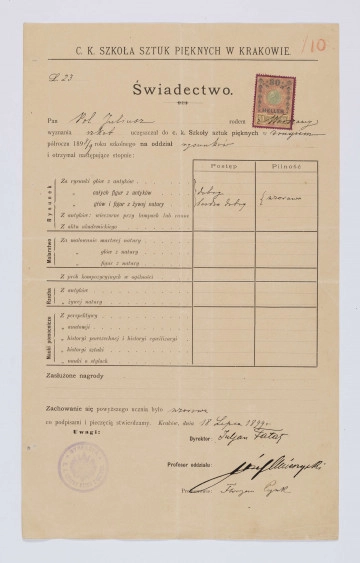 C. K. SZKOŁA SZTUK PIĘKNYCH W KRAKOWIE.
/10
L 23
Świadectwo.
Pan Pol Juliusz rodem z Warszawy
wyznania uczęszczał do c. k. Szkoły sztuk pięknych w
półroczu 189 roku szkolnego na oddział rysunków
i otrzymał następujące stopnie:
Postęp. Pilność.
Rysunek
Za rysunki głów z antyków
„ całych figur z antyków dobry
„ głów i figur z żywej natury bardzo dobry wzorowa
Z antyków: wieczorne przy lampach lub rano
Z aktu akademickiego
Malarstwo
Za malowanie martwej natury
„ głów z natury
„ figur z natury
Z prób kompozycyjnych w ogólności
Rzeźba
Z antyków
„ żywej natury
Nauki pomocnicze
Z perspektywy
„ anatomii
„ historyi powszechnej i historyi cywilizacyi
„ historyi sztuki
„ nauki o stylach
Zasłużone nagrody
Zachowanie się powyższego ucznia było wzorowe
co podpisami i pieczęcią stwierdzamy. Kraków, dnia 18 Lipca 1899 r.
Uwagi:
Dyrektor: Juljan Fałat
Profesor oddziału:
Józef
Florjan Cynk